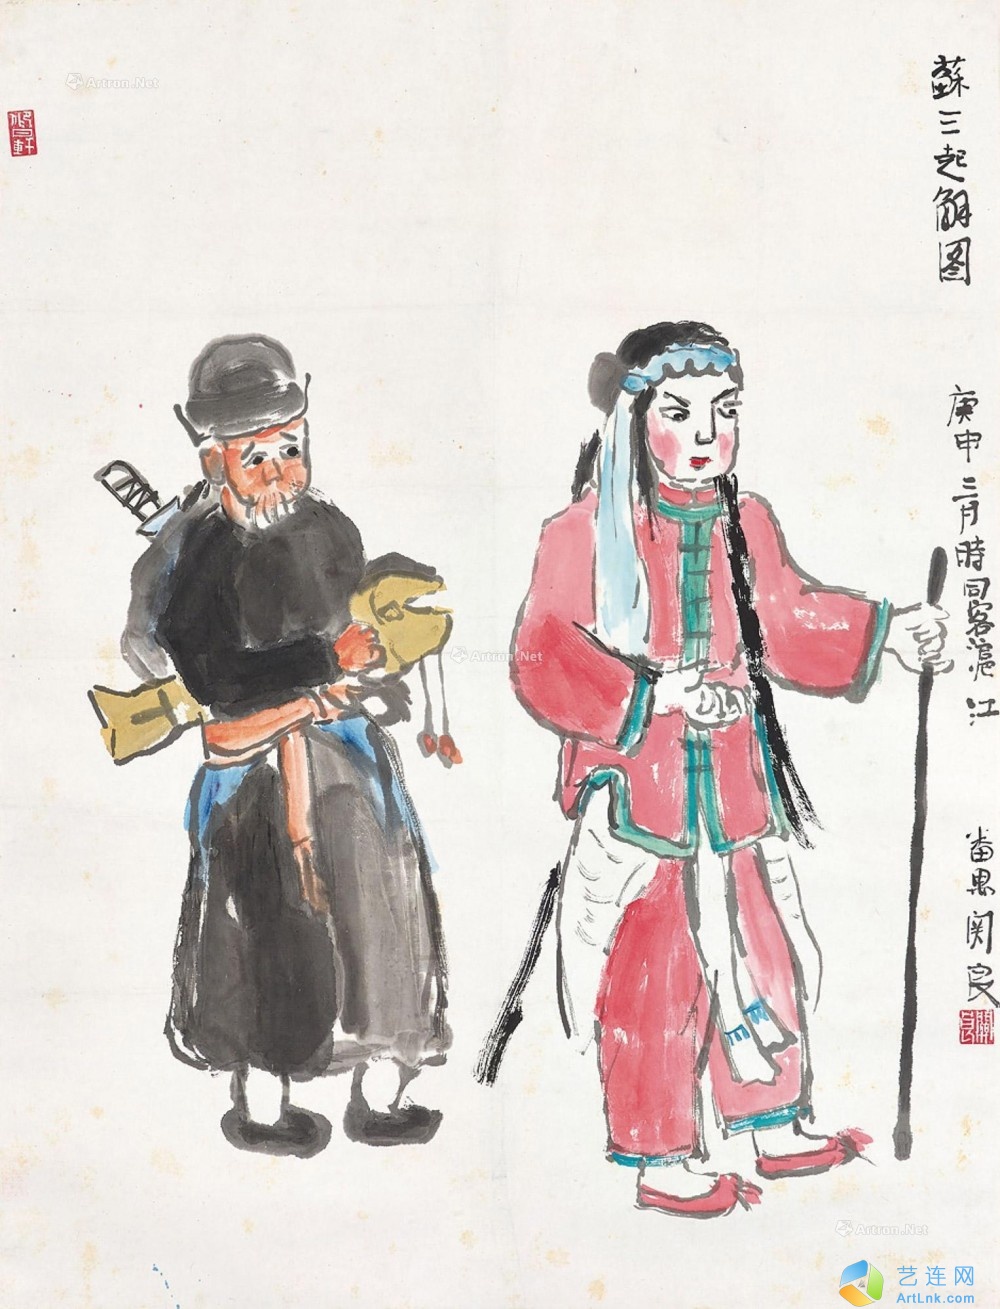 蘇三起解图
庚申二月時同客滬江
番禺関良
関良
Artron.Net
Artron.Net
Artron.Net
艺连网
ArtLnk.com